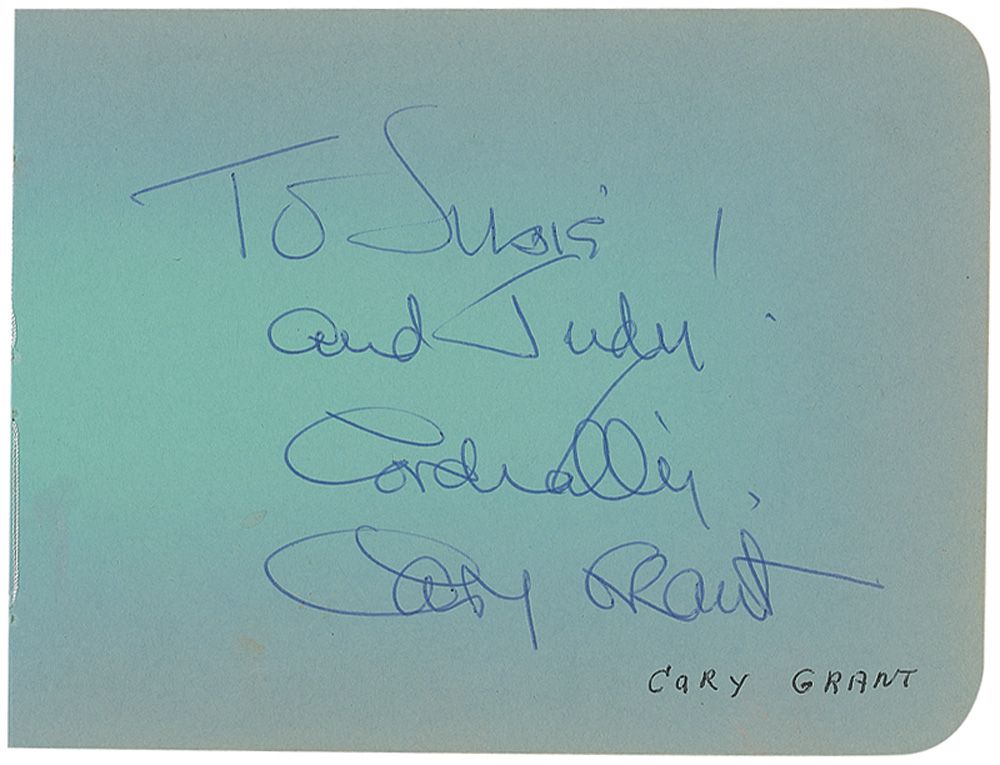 To Susie
and Judy
Cordially,
Cary Grant
CaRy GRANT